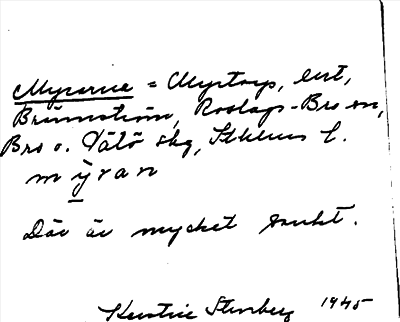 Myrarne = Myrtorp, ent,
Brännström, Roslags-Bro sn,
Bro o. Vätö skg, Sthlms l.
mỳran
Där är mycket sankt.
Kerstin Stenberg 1945